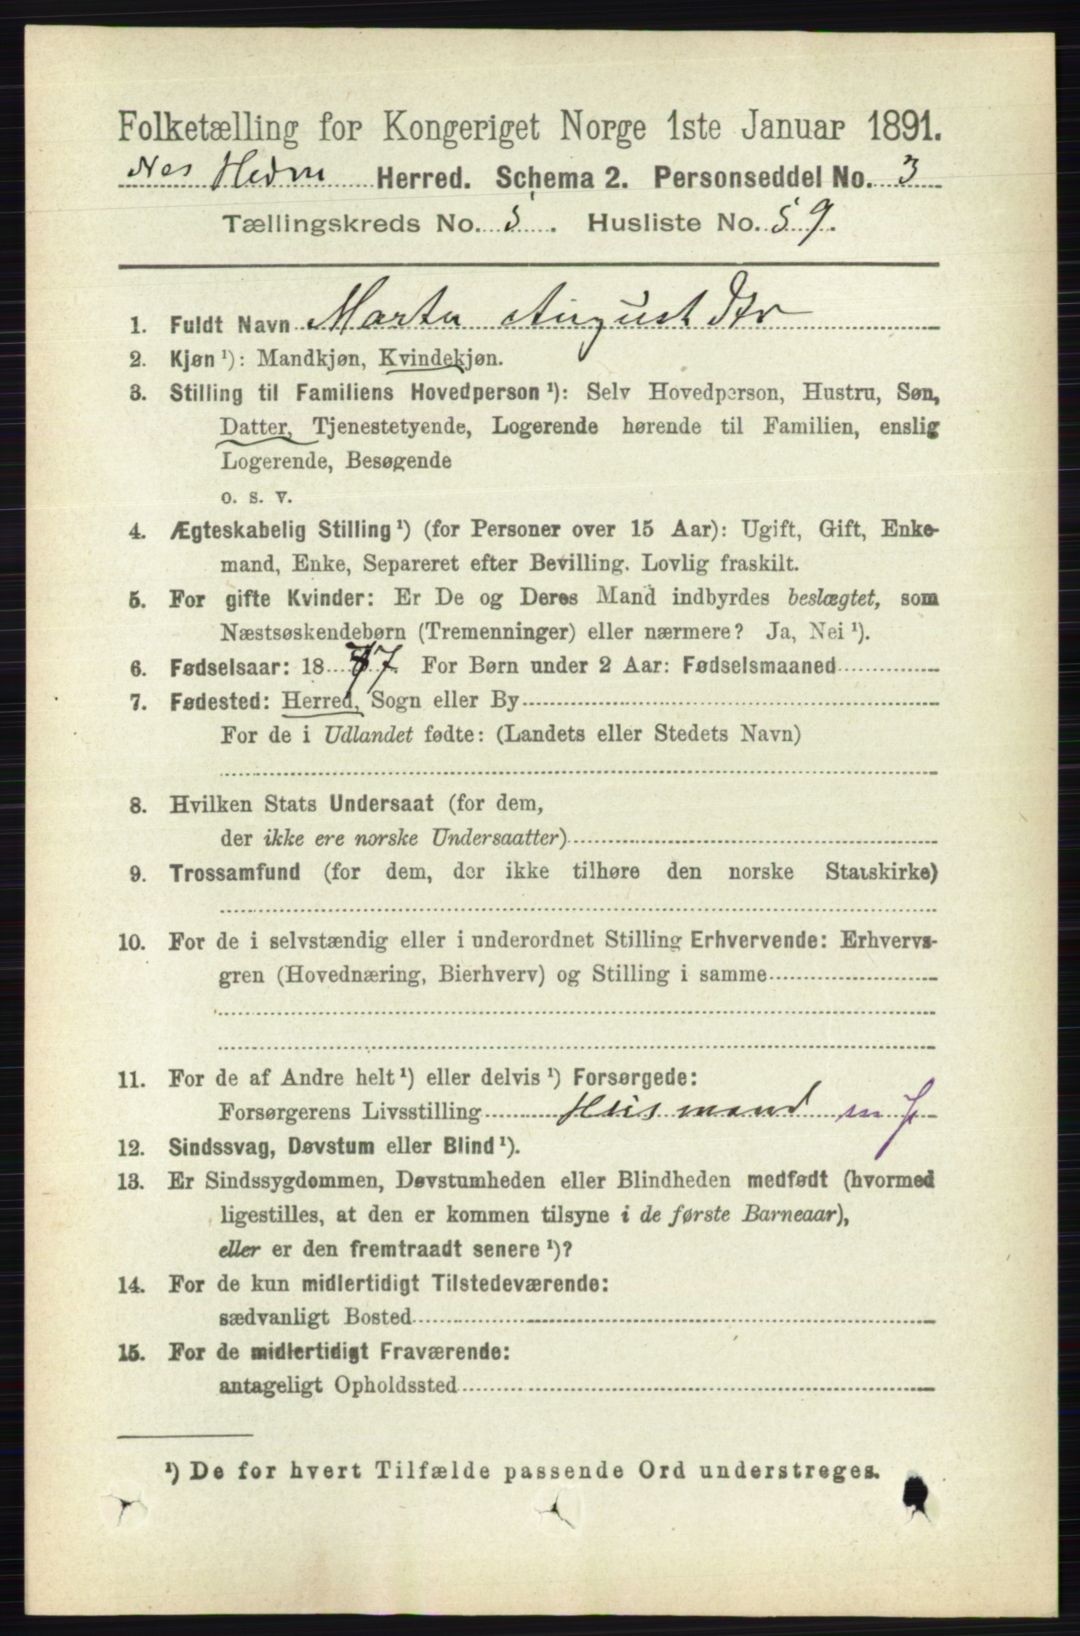 Folketælling for Kongeriget Norge 1ste Januar 1891.
Nes Hedm Herred. Schema 2. Personseddel No. 3
Tællingskreds No. 5. Husliste No. 59.
1. Fuldt Navn Marta August
2. Kjøn ¹): Mandkjøn, Kvindekjøn.
3. Stilling til Familiens Hovedperson ¹): Selv Hovedperson, Hustru, Søn,
Datter, Tjenestetyende, Logerende hørende til Familien, enslig
Logerende, Besøgende
o. s. v.
4. Ægteskabelig Stilling ¹) (for Personer over 15 Aar): Ugift, Gift, Enke-
mand, Enke, Separeret efter Bevilling. Lovlig fraskilt.
5. For gifte Kvinder: Er De og Deres Mand indbyrdes beslægtet, som
Næstsøskendebørn (Tremenninger) eller nærmere? Ja, Nei ¹).
6. Fødselsaar: 1877 For Børn under 2 Aar: Fødselsmaaned
7. Fødested: Herred, Sogn eller By
For de i Udlandet fødte: (Landets eller Stedets Navn)
8. Hvilken Stats Undersaat (for dem,
der ikke ere norske Undersaatter)
9. Trossamfund (for dem, der ikke tilhøre den norske Statskirke)
10. For de i selvstændig eller i underordnet Stilling Erhvervende: Erhvervs-
gren (Hovednæring, Bierhverv) og Stilling i samme
11. For de af Andre helt ¹) eller delvis ¹) Forsørgede:
Forsørgerens Livsstilling Husmand m J
12. Sindssvag, Døvstum eller Blind ¹).
13. Er Sindssygdommen, Døvstumheden eller Blindheden medfødt (hvormed
ligestilles, at den er kommen tilsyne i de første Barneaar),
eller er den fremtraadt senere ¹)?
14. For de kun midlertidigt Tilstedeværende:
sædvanligt Bosted
15. For de midlertidigt Fraværende:
antageligt Opholdssted
¹) De for hvert Tilfælde passende Ord understreges.